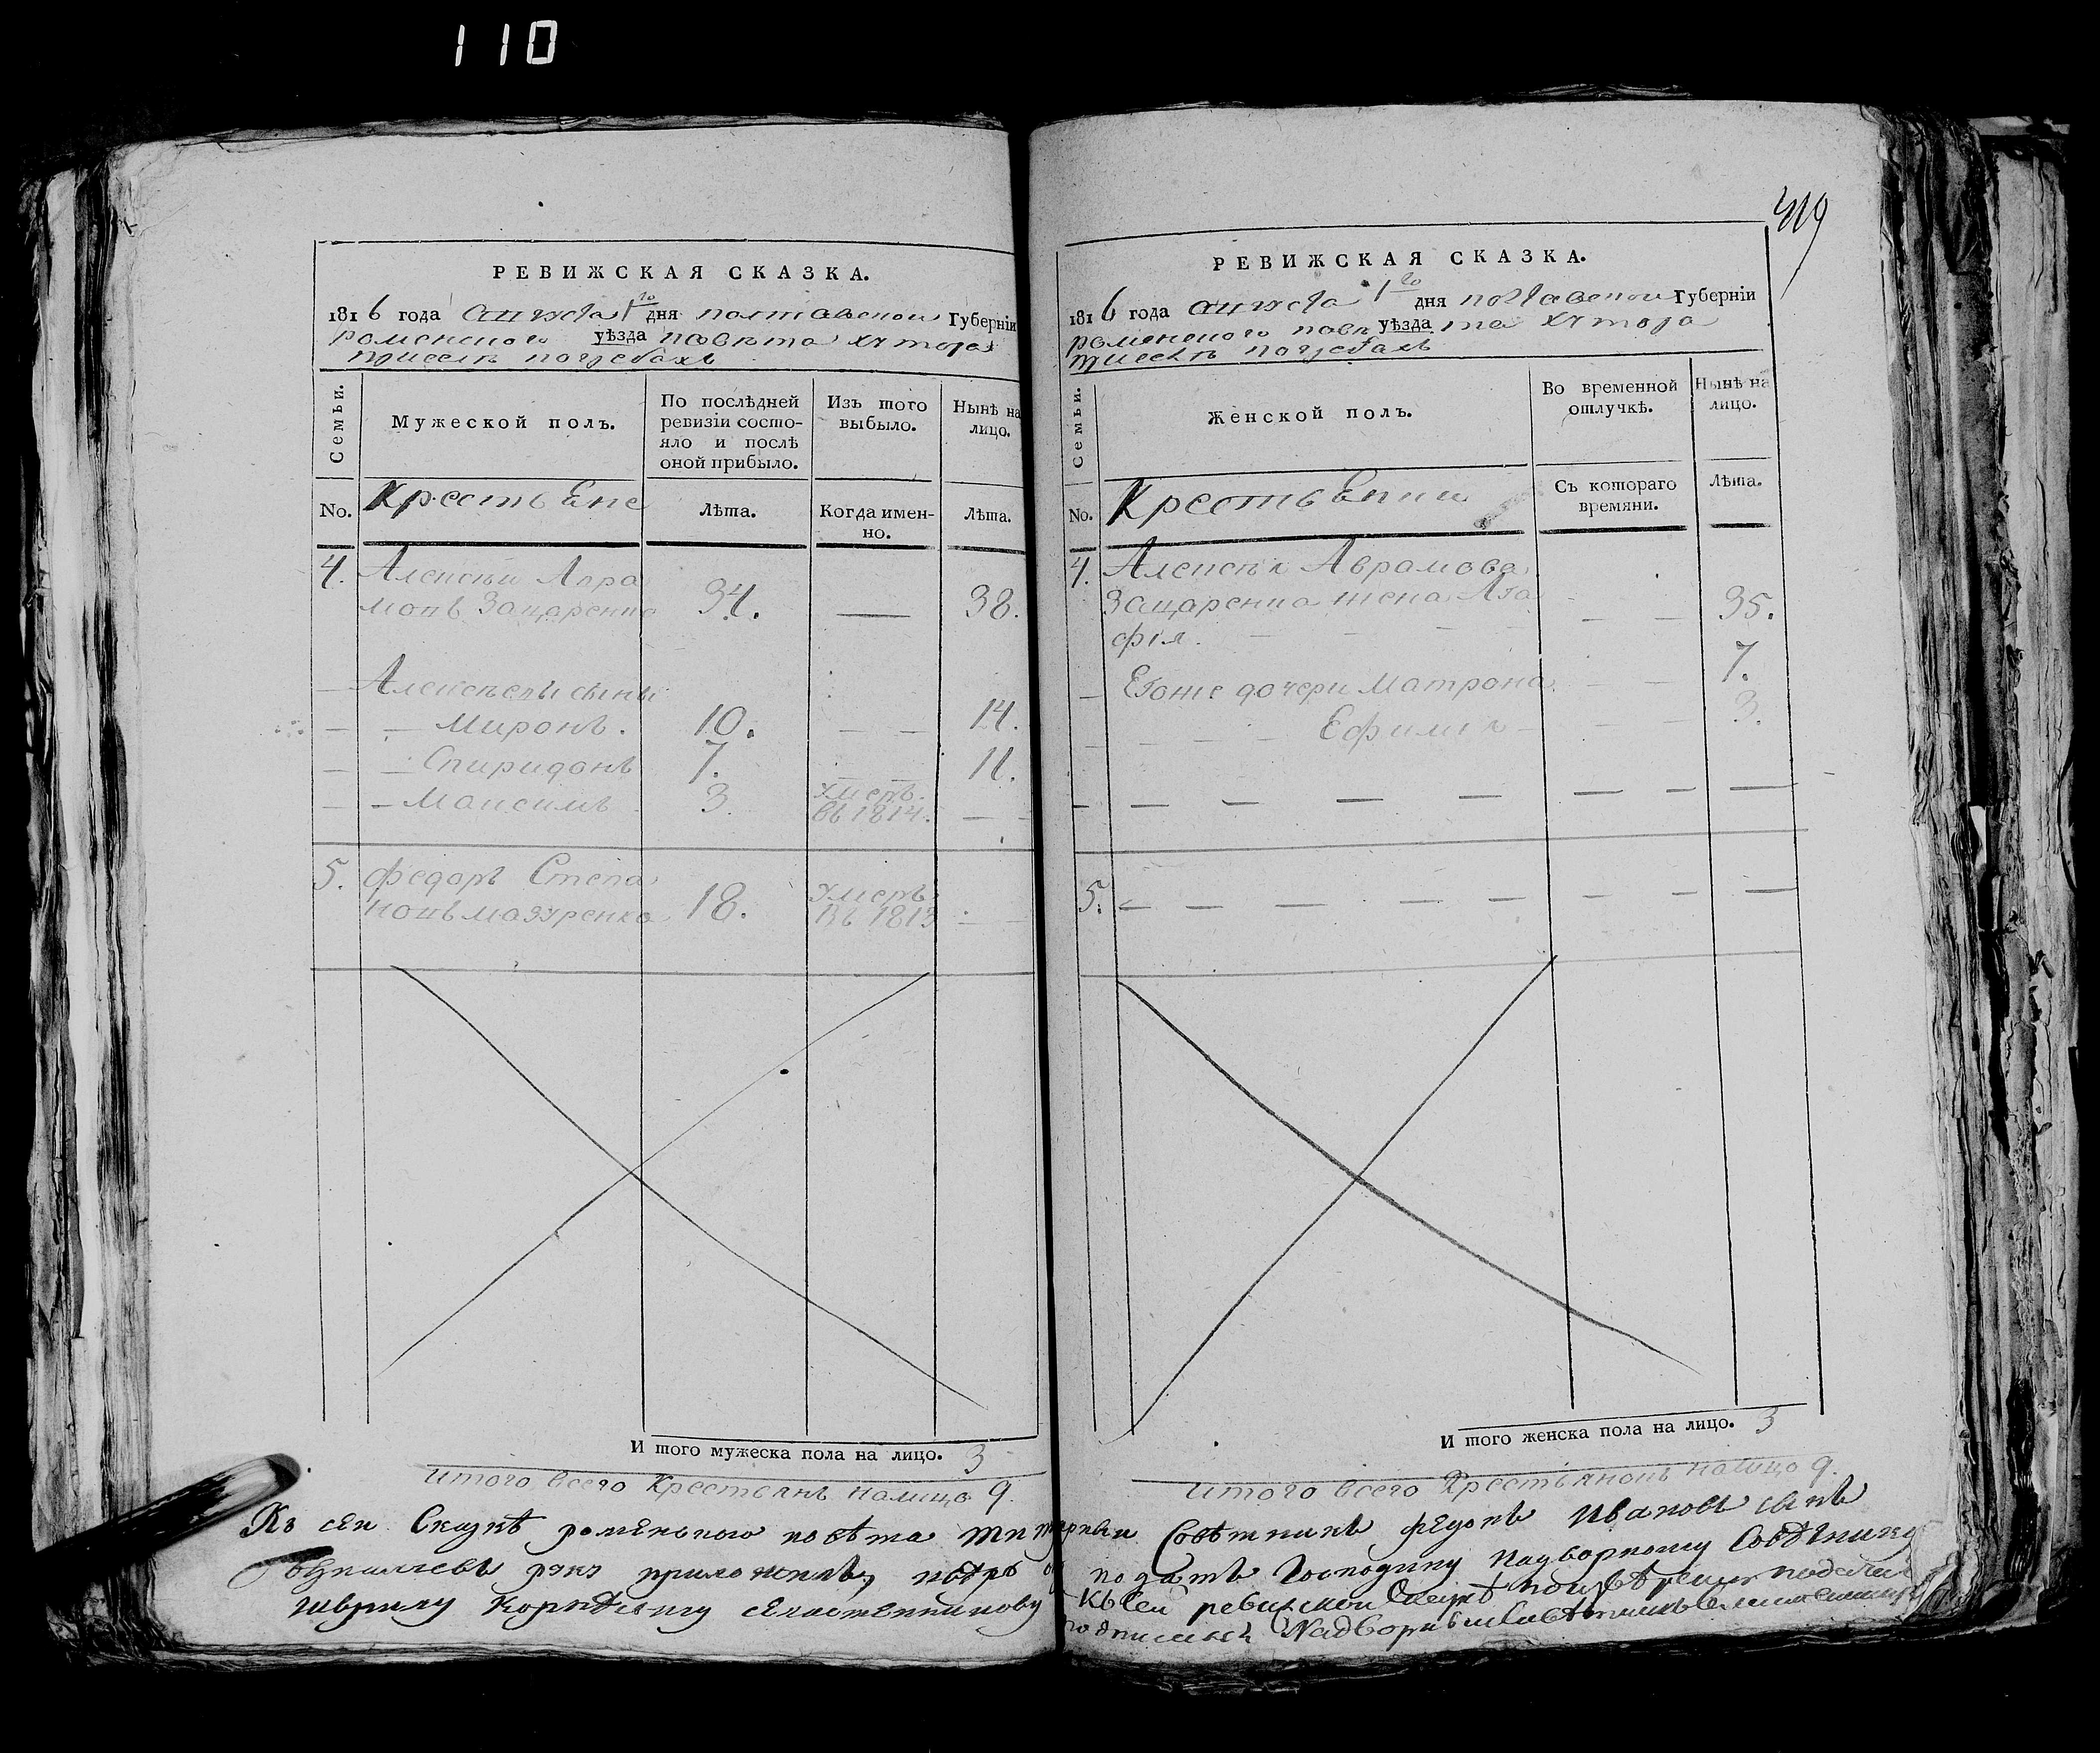 110
РЕВИЖСКАЯ СКАЗКА.
1816 года августа 1го дня полтавской Губерніи
роменского уѣзда повѣта хутора
Мужеской полъ.
Семьи.
По послѣдней ревизіи состо-
яло и послѣ
оной прибыло.
Изъ того
выбыло.
Нынѣ на
лицо.
No.
Крестьяне
Лѣта.
Когда имен-
но.
Лѣта.
4. Алексѣй Авра
мовъ Зацаренко 34. — 38.
Алексѣевы сыны
Миронъ. 10. — — 14.
Спиридонъ 7. — — 11.
Максимъ 3. умеръ
въ 1814. — —
5. Федоръ Степа
новъ мазуренко 18. умеръ
въ 1813 — —
И того мужеска пола на лицо. 3
итого всего Крестьянъ налицо 9.
419
РЕВИЖСКАЯ СКАЗКА.
1816 года августа 1го дня полтавской Губерніи
роменского повѣ уѣзда та хутора
Семьи.
Женской полъ.
Во временной
отлучкѣ.
Нынѣ на
лицо.
No.
Крестьянки
Съ котораго
времяни.
Лѣта.
4. Алексѣя Аврамова
Зацаренка жена Ага
фія. — — 35.
Егоже дочери Матрона — — 7.
Ефимія — — 3.
5. — — — — — — — —
И того женска пола на лицо. 3
итого всего Крестьянокъ налицо 9.
Къ сей Сказкѣ роменского повѣта титулярный Совѣтникъ федоръ Ивановъ сынъ
руку приложилъ, подать Господину Надворному Совѣтнику
Къ сей ревижской Сказкѣ
Надворный Совѣтникъ